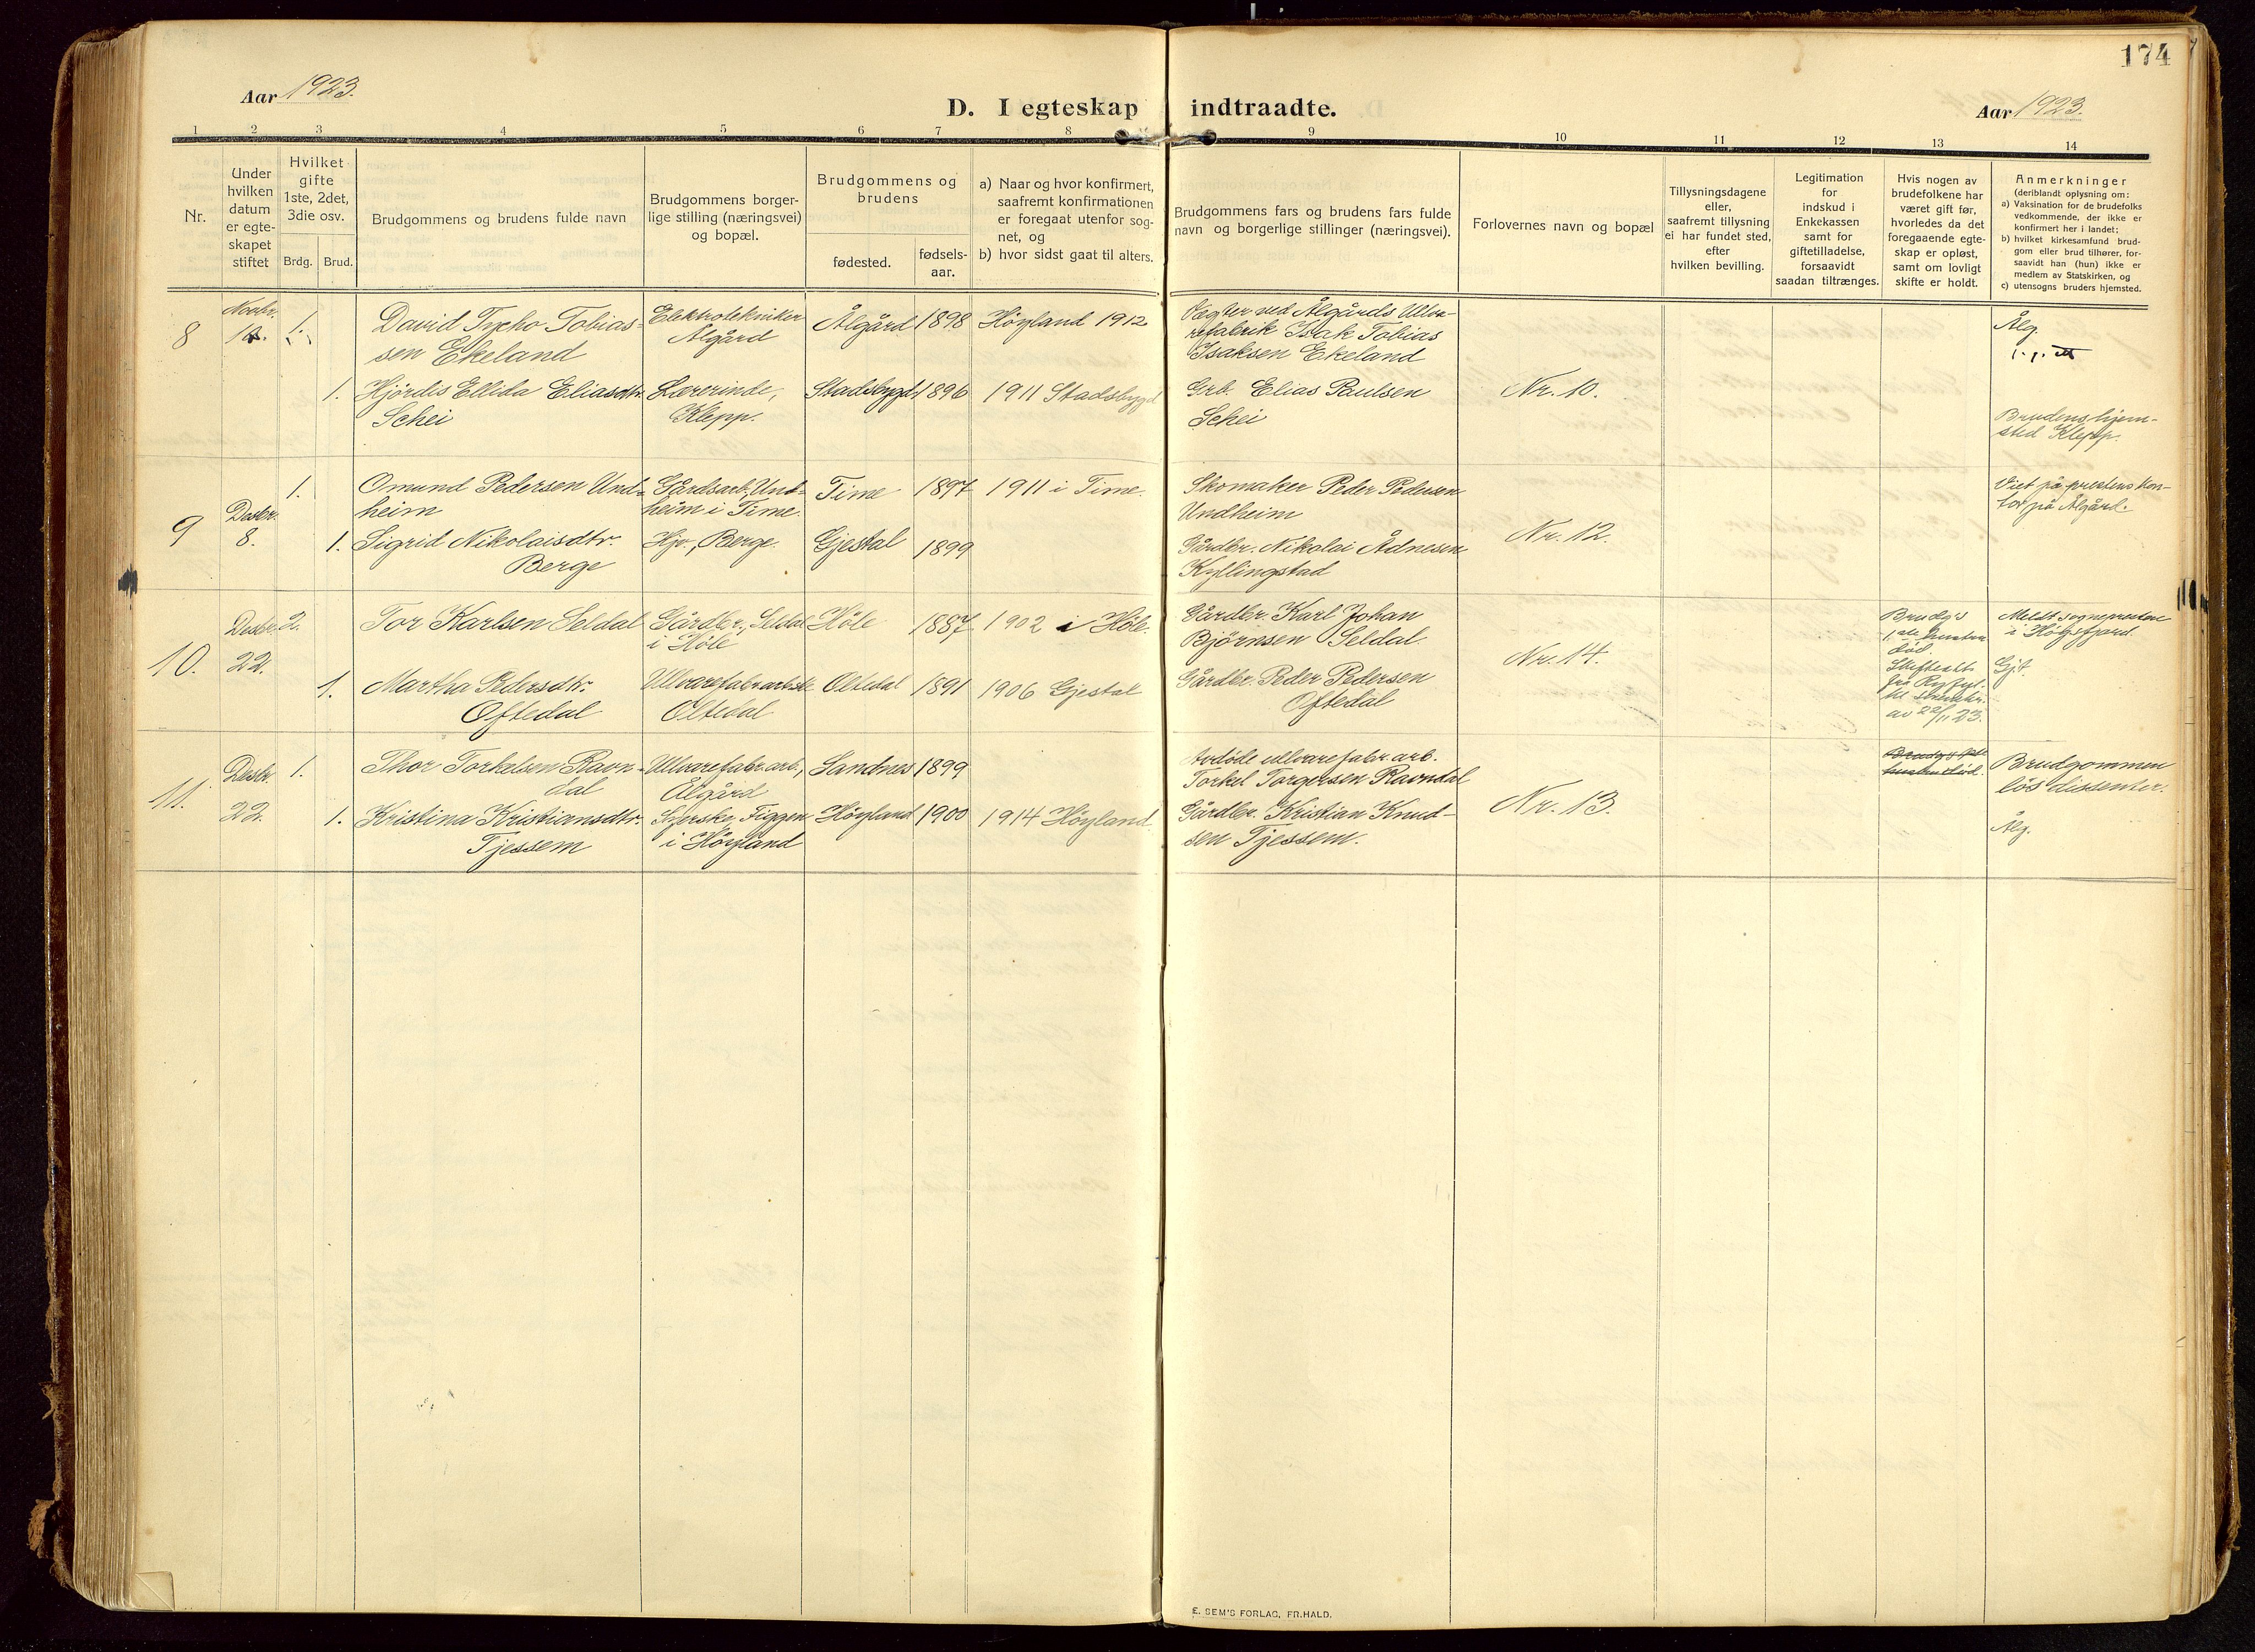 174
Aar 1923.
D. I egteskap indtraadte.
Aar 1923.
1 2 3 4 5 6 7 8 9 10 11 12 13 14
Nr.
Under
hvilken
datum
er egte-
skapet
stiftet
Hvilket
gifte
1ste, 2det,
3die osv.
Brdg. Brud.
Brudgommens og brudens fulde navn
Brudgommens borger-
lige stilling (næringsvei)
og bopæl.
Brudgommens og
brudens
fødested.
fødsels-
aar.
a) Naar og hvor konfirmert,
saafremt konfirmationen
er foregaat utenfor sog-
net, og
b) hvor sidst gaat til alters.
Brudgommens fars og brudens fars fulde
navn og borgerlige stillinger (næringsvei).
Forlovernes navn og bopæl
Tillysningsdagene
eller,
saafremt tillysning
ei har fundet sted,
efter
hvilken bevilling.
Legitimation
for
indskud i
Enkekassen
samt for
giftetilladelse,
forsaavidt
saadan tiltrænges.
Hvis nogen av
brudefolkene har
været gift før,
hvorledes da det
foregaaende egte-
skap er opløst,
samt om lovligt
skifte er holdt.
Anmerkninger
(deriblandt oplysning om:
a) Vaksination for de brudefolks
vedkommende, der ikke er
konfirmert her i landet;
b) hvilket kirkesamfund brud-
gom eller brud tilhører, for-
saavidt han (hun) ikke er
medlem av Statskirken, og
c) utensogns bruders hjemsted.
8
Novbr.
1.
David Tycho Tobias-
sen Ekeland
Elektrotekniker
Ålgård
Ålgård
1898
Höyland 1912
Vægter ved Ålgårds Ullva-
refabrik Isak Tobias
Isaksen Ekeland
Ålg.
1.
Hjördis Ellida Eliasdtr.
Schei
Lærerinde,
Klepp.
Stadsbygd
1896
1911 Stadsbygd
Grb. Elias Paulsen
Schei
Nr. 10.
Brudens hjem-
sted Klepp.
9
Desbr.
8.
1.
Omund Pedersen Und-
heim
Gårdsarb., Und-
heim i Time.
Time
1897
1911 i Time.
Skomaker Peder Pedersen
Undheim
Viet på prestens kon-
tor på Ålgård.
1.
Sigrid Nikolaisdtr.
Berge
Hjv., Berge.
Gjestal
1899
Gårdbr. Nikolai Ådnesen
Kyllingstad
Nr. 12.
10.
Desbr.
22.
2.
Tor Karlsen Seldal
Gårdbr., Seldal
i Höle
Höle
1887
1902 i Höle.
Gårdbr. Karl Johan
Björnsen Seldal.
Brudg's
1ste hustru
död.
Skifteatt.
fra Ryfyl-
ke sorenskr.
av 22/11 23.
Meldt sognepresten
i Högsfjord.
Gjt.
1.
Martha Pedersdtr.
Oftedal
Ullvarefabrarbske
Oltedal
Oltedal
1891
1906 Gjestal
Gårdbr. Peder Pedersen
Oftedal
Nr. 14.
11.
Desbr.
22.
1.
Thor Torkelsen Ravn-
dal
Ullvarefabr.arb.,
Ålgård
Sandnes
1899
Avdöde ullvarefabr.arb.
Torkel Torgersen Ravndal
Brudgommen
lös dissenter.
Ålg.
1.
Kristina Kristiansdtr.
Tjessem
Syerske, Figgen
i Höyland
Höyland
1900
1914 Höyland.
Gårdbr. Kristian Knud-
sen Tjessem.
Nr. 13.
E. SEM'S FORLAG, FR.HALD.